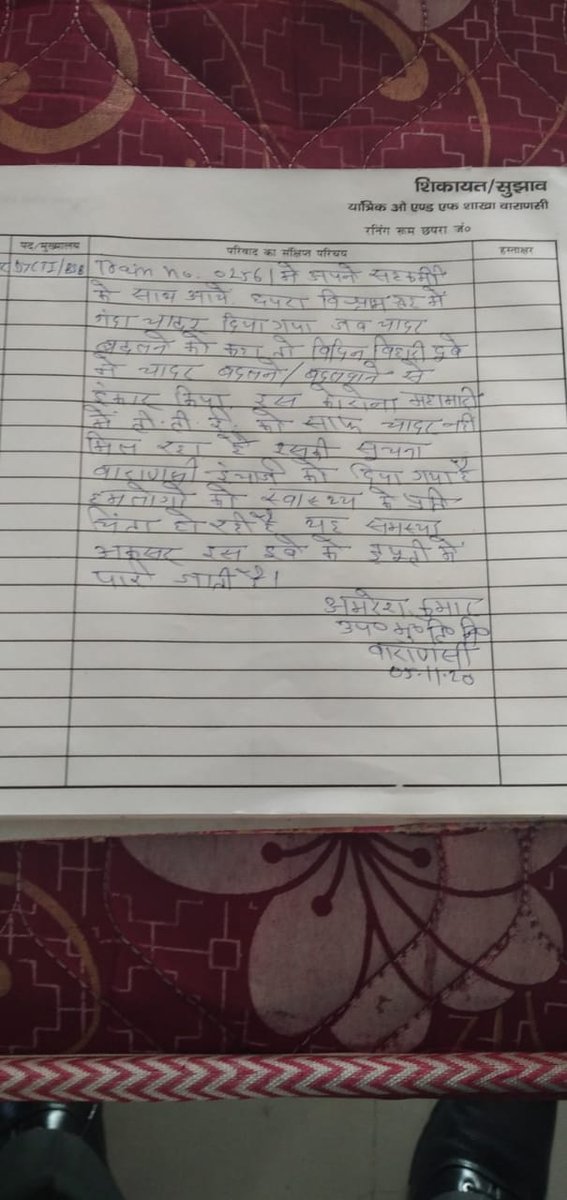 शिकायत/सुझाव
यांत्रिक ओ एण्ड एफ शाखा वाराणसी
रनिंग रूम छपरा जं०
पद/मुख्यालय परिवाद का संक्षिप्त परिचय हस्ताक्षर
DyCTI/BSB Train no. 02561 में अपने सहकर्मी
के साथ आये. छपरा विश्रामगृह में
गंदा चादर दिया गया जब चादर
बदलने को कहा तो विपिन बिहारी दुबे
ने चादर बदलने/बदलवाने से
इंकार किया इस कोरोना महामारी
में टी.टी.ई. को साफ चादर नहीं
मिल रहा है इसकी सूचना
वाराणसी इंचार्ज को दिया गया है
हमलोगों को स्वास्थ्य के प्रति
चिंता हो रही है यह समस्या
अक्सर इस दुबे के ड्यूटी में
पायी जाती है।
अमरेश कुमार
उप० मु० टि० नि०
वाराणसी
05.11.20